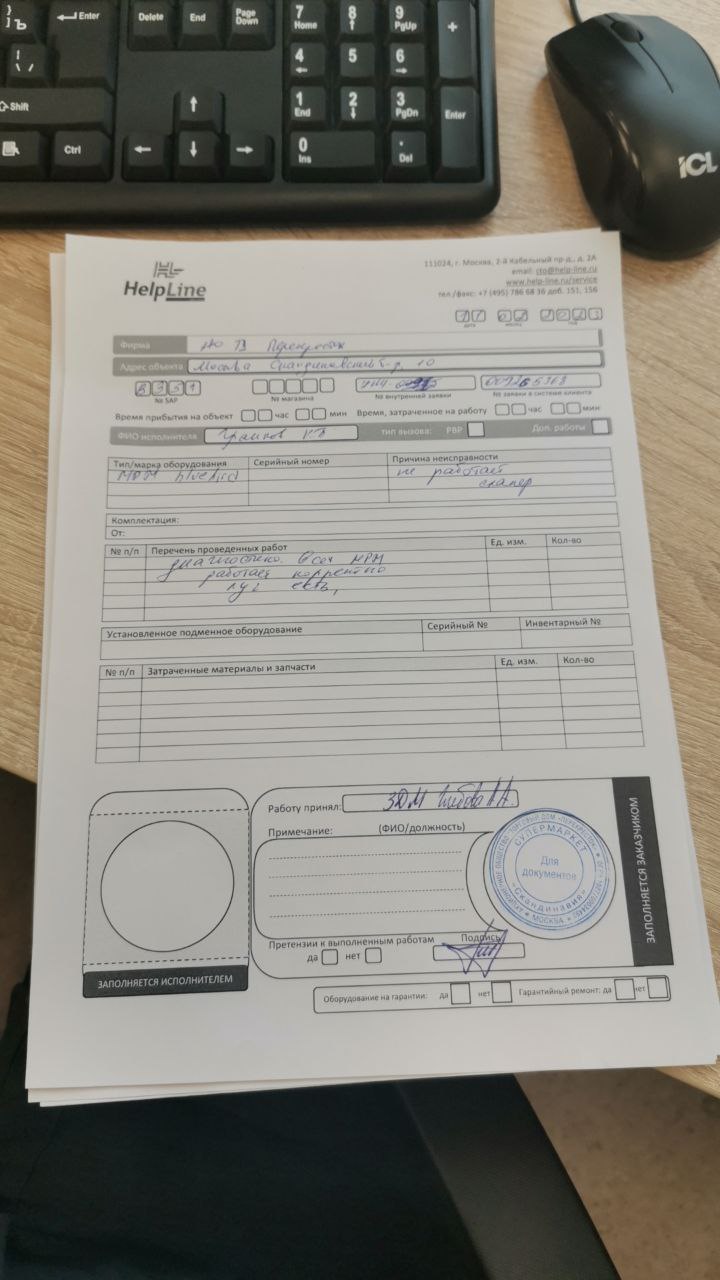 }
]
Ъ
← Enter
Delete
End
Page
Down
7
Home
8
9
PgUp
+
4
5
6
Shift
1
End
2
3
PgDn
Enter
Ctrl
0
Ins
.
Del
ICL
HelpLine
111024, г. Москва, 2-й Кабельный пр-д., д. 2А
email: cto@help-line.ru
www.help-line.ru/service
тел./факс: +7 (495) 786 68 36 доб. 151, 156
дата месяц год
Фирма АО ТД Перекресток
Адрес объекта Москва Скандинавский б-р, 10
№ SAP № магазина № внутренней заявки № заявки в системе клиента
Время прибытия на объект час мин Время, затраченное на работу час мин
ФИО исполнителя тип вызова: РВР Доп. работы
Тип/марка оборудования Серийный номер Причина неисправности
не работает
сканер
Комплектация:
От:
№ п/п Перечень проведенных работ Ед. изм. Кол-во
диагностика. Все МРМ
работает корректно
есть,
Установленное подменное оборудование Серийный № Инвентарный №
№ п/п Затраченные материалы и запчасти Ед. изм. Кол-во
Работу принял: ЗДМ
(ФИО/должность)
Примечание:
СУПЕРМАРКЕТ
Для
документов
«Скандинавия»
МОСКВА
Претензии к выполненным работам
да нет
Подпись
ЗАПОЛНЯЕТСЯ ИСПОЛНИТЕЛЕМ
ЗАПОЛНЯЕТСЯ ЗАКАЗЧИКОМ
Оборудование на гарантии: да нет Гарантийный ремонт: да нет